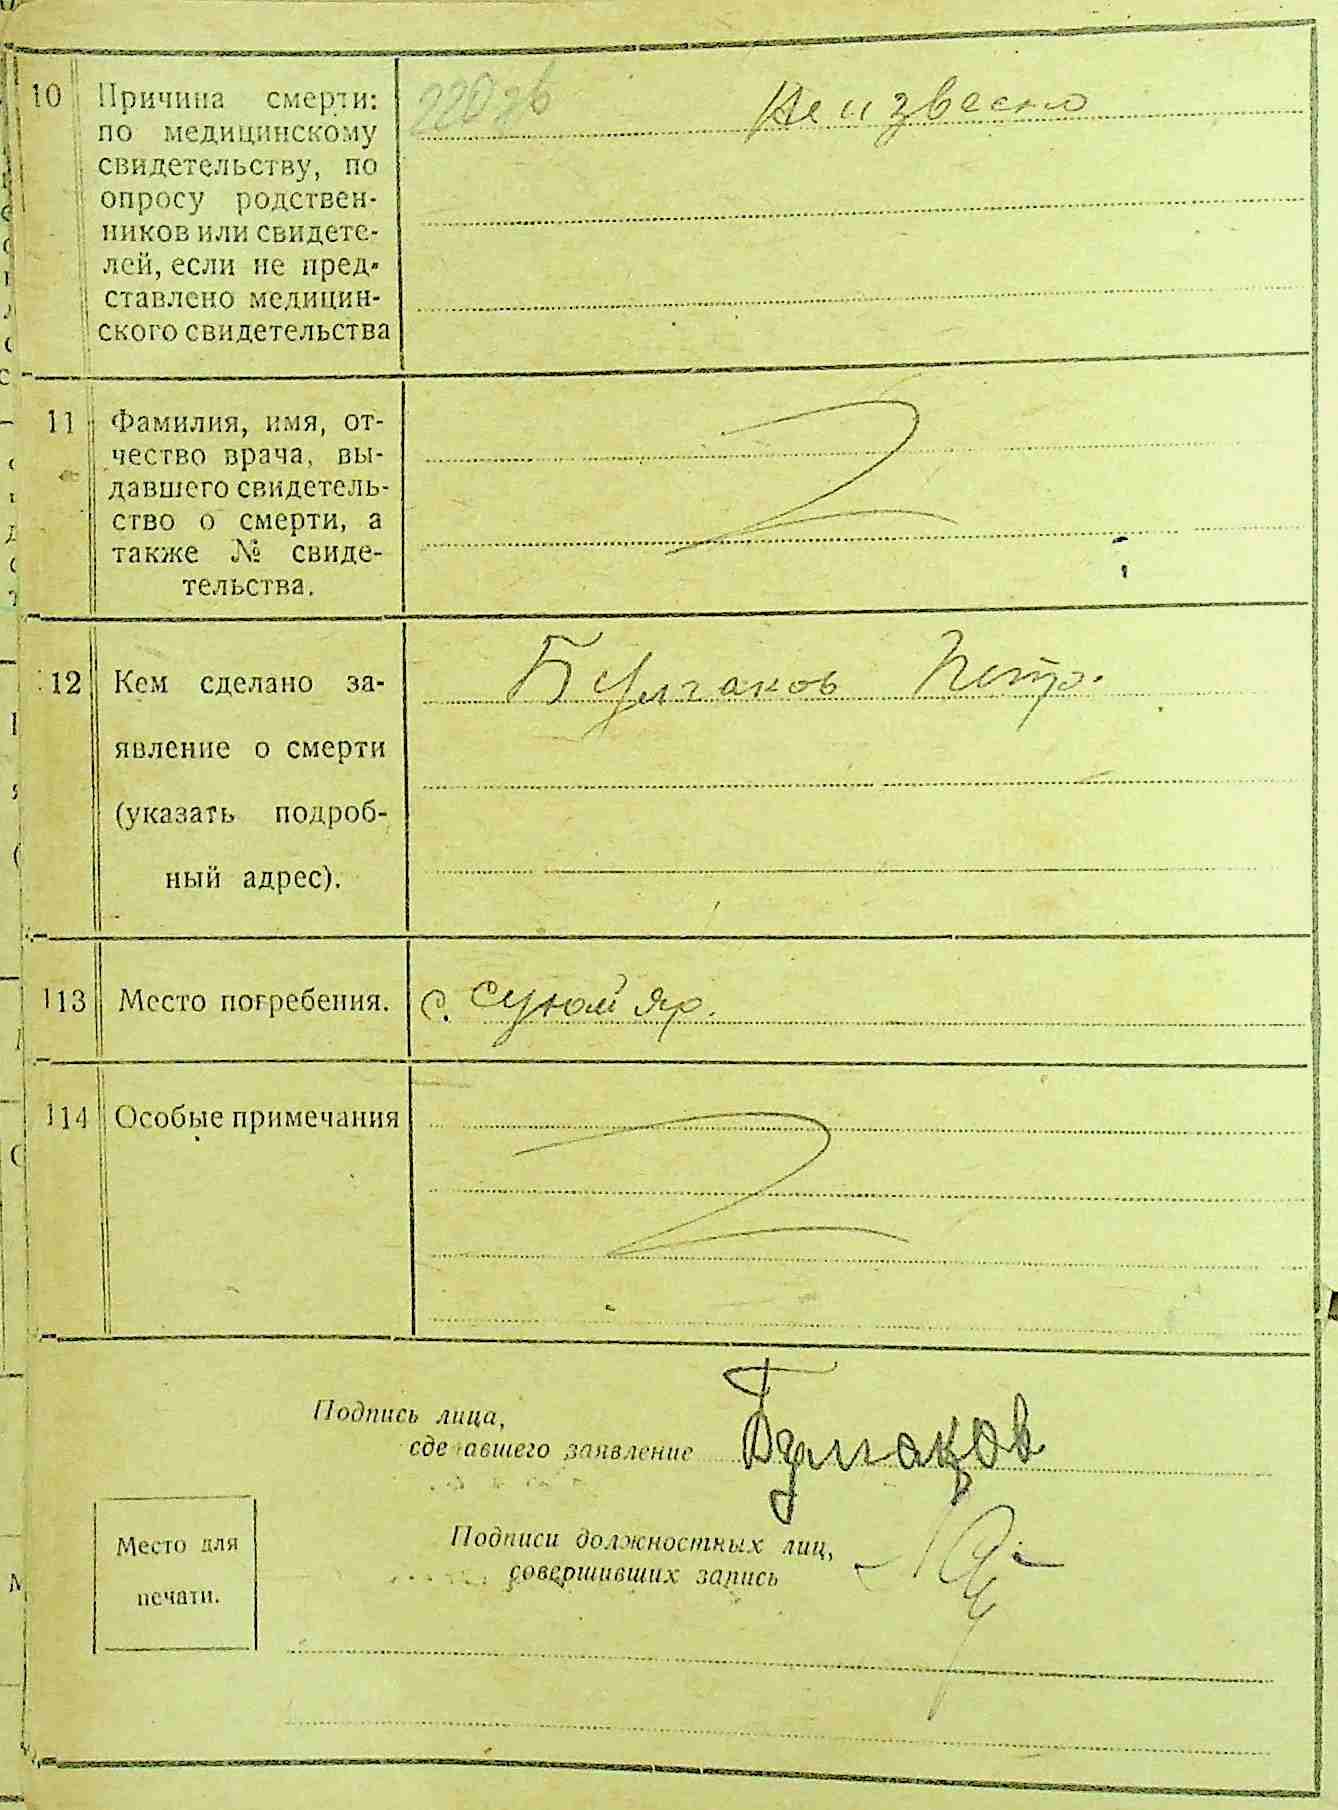 10 Причина смерти: Неизвесно
по медицинскому
свидетельству, по
опросу родствен-
ников или свидете-
лей, если не пред-
ставлено медицин-
ского свидетельства
11 Фамилия, имя, от-
чество врача, вы-
давшего свидетель-
ство о смерти, а
также № свиде-
тельства.
12 Кем сделано за- Булгаков Петр.
явление о смерти
(указать подроб-
ный адрес).
13 Место погребения. с. Сухой Яр.
14 Особые примечания
Подпись лица,
сделавшего заявление Булгаков
Место для
печати.
Подписи должностных лиц,
совершивших запись